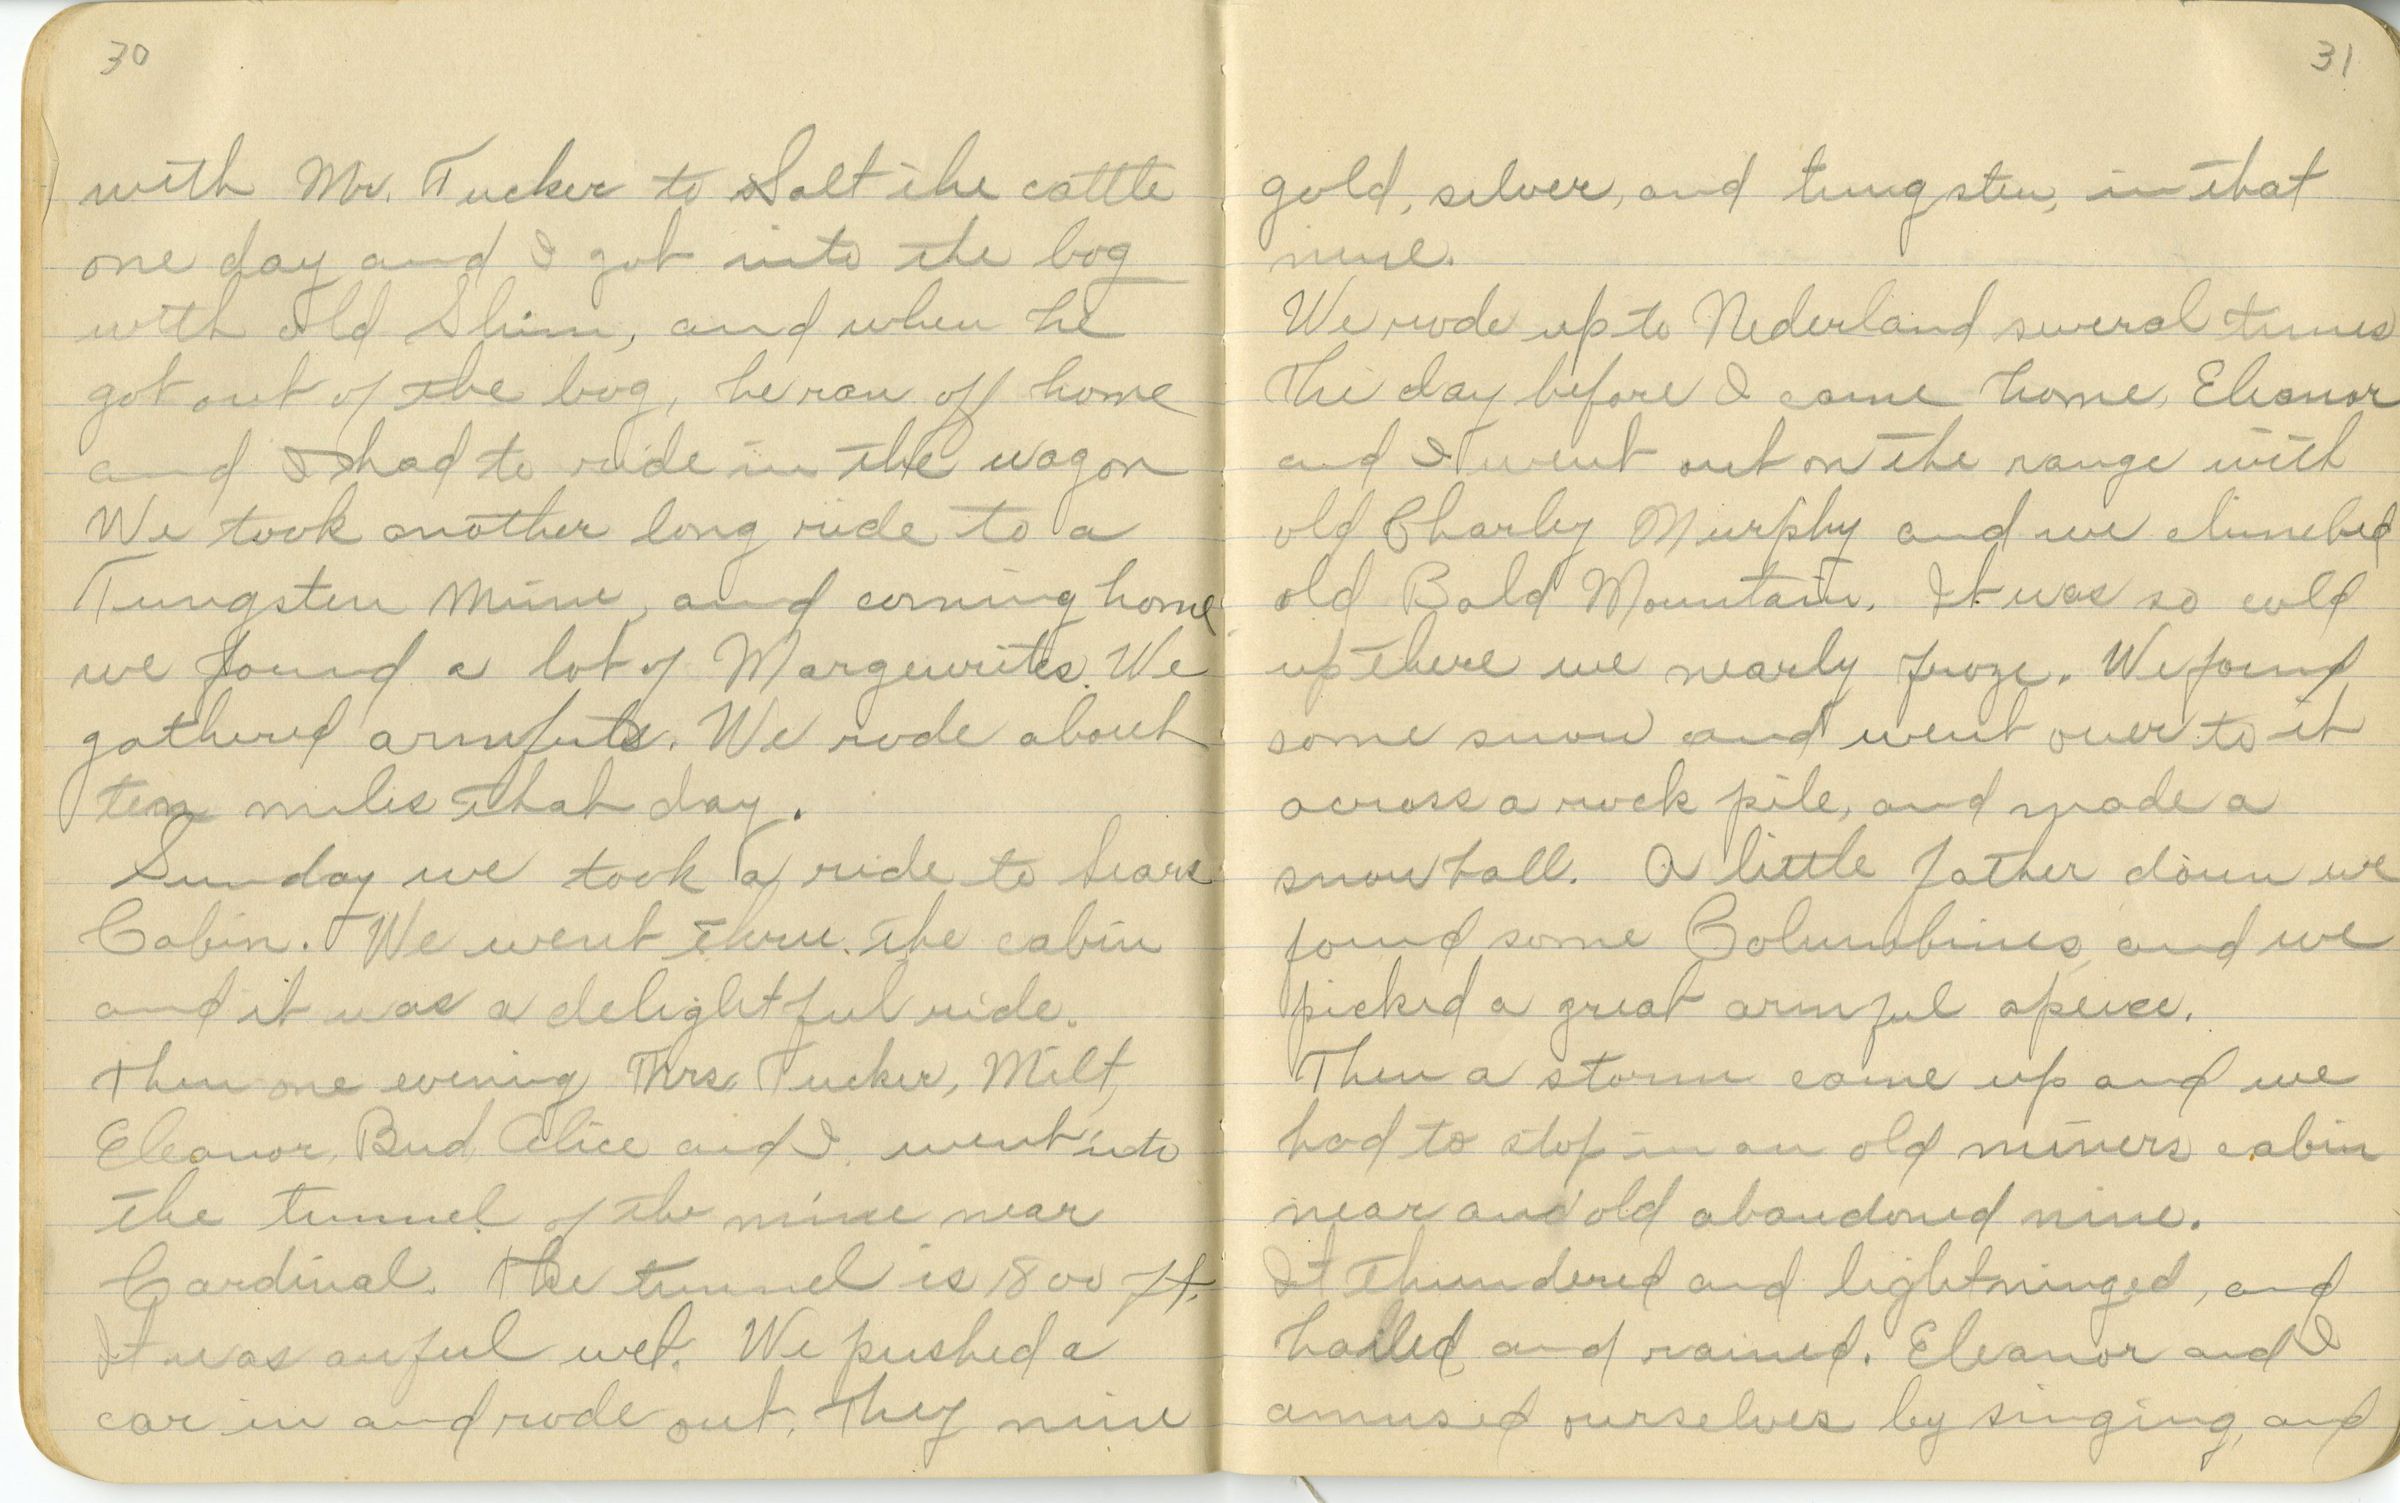 30
with Mr. Tucker to Salt the cattle
one day and I got into the bog
with old Slim, and when he
got out of the bog, he ran off home
and I had to ride in the wagon
We took another long ride to a
Tungsten Mine, and coming home
we found a lot of Margeurites. We
gathered armfuls. We rode about
ten miles that day.
Sunday we took a ride to Sears
Cabin. We went thru the cabin
and it was a delightful ride.
Then one evening Mrs. Tucker, Milt,
Eleanor, Bud, Alice and I went into
the tunnel of the mine near
Cardinal. The tunnel is 1800 ft.
It was awful wet. We pushed a
car in and rode out. They mine
31
gold, silver, and tungsten, in that
mine.
We rode up to Nederland several times
The day before I came home, Eleanor
and I went out on the range with
old Charley Murphy and we climbed
old Bald Mountain. It was so cold
up there we nearly froze. We found
some snow and went over to it
across a rock pile, and made a
snow ball. A little father down we
found some Columbines, and we
picked a great armful apeice.
Then a storm came up and we
had to stop in an old miners cabin
near and old abandoned mine.
It Thundered and lightninged, and
hailed and rained. Eleanor and I
amused ourselves by singing, and